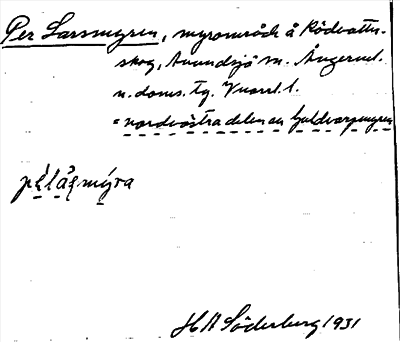 Per Larsmyren, myrområde å Rödvattn-
skog, Anundsjö sn. Ångerml.
n. doms. tg. Vnorrl. l.
= nordvästra delen av Guldvarpmyren
pe̍lå̀smýra
H A Söderberg 1931